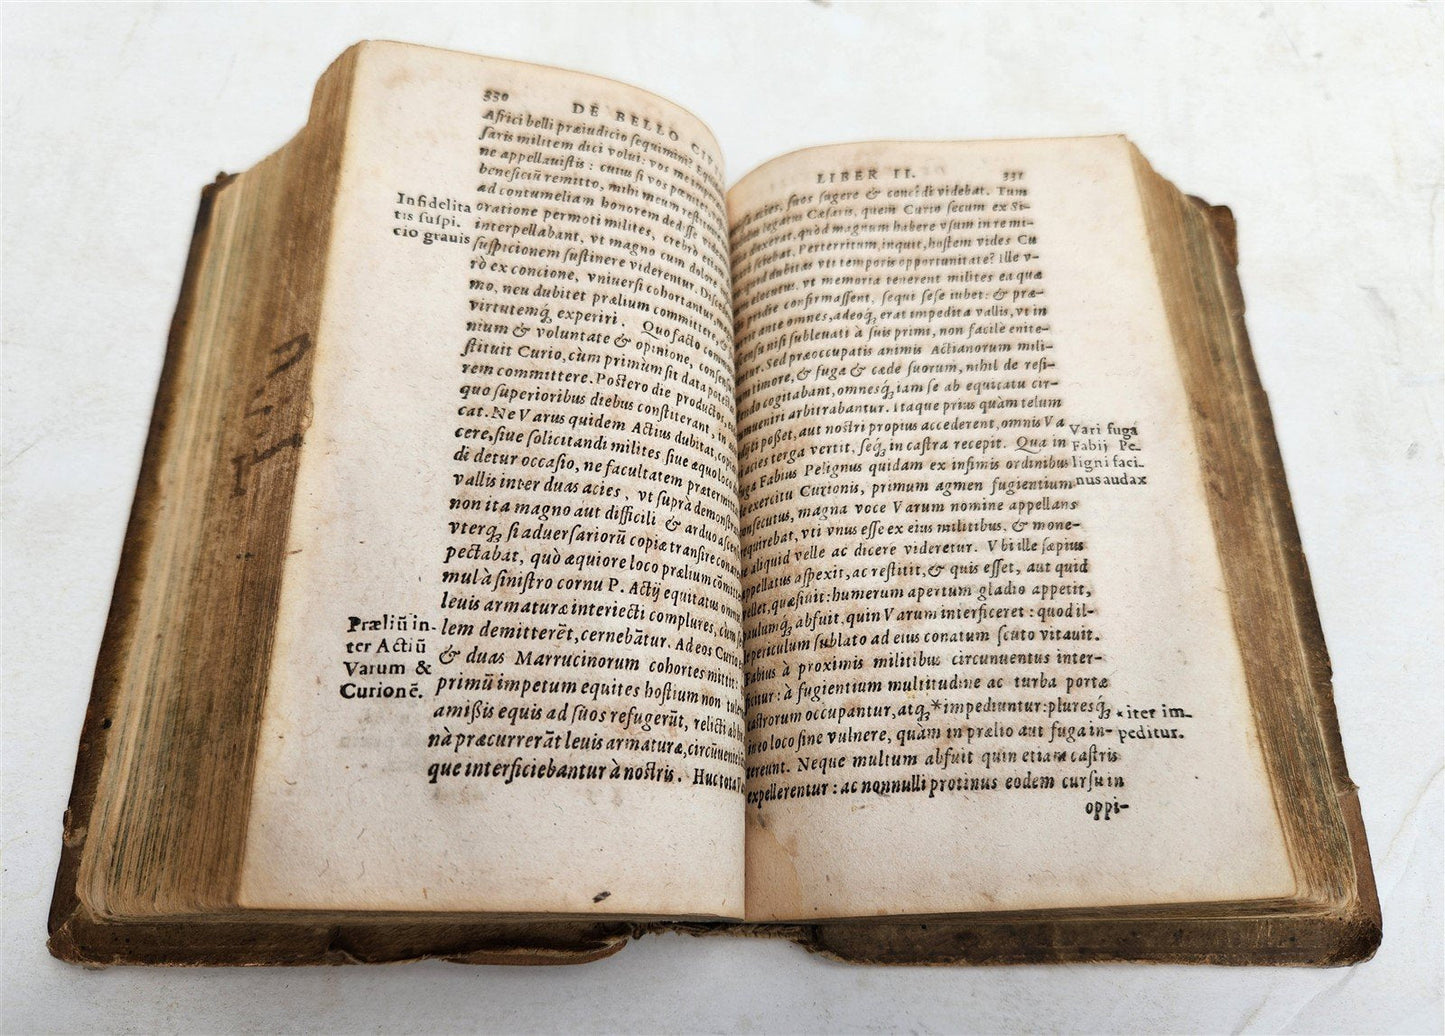 330 DE BELLO CIVI
Africi belli præiudicio sequimini? Equi
saris militem dici volui: vos me impera
ne appellauistis: cuius si vos pœnitet, ve
beneficiū remitto, mihi meum restituite
ad contumeliam honorem dedisse videa
oratione permoti milites, crebrò etiam
interpellabant, vt magno cum dolore in
suspicionem sustinere viderentur. Disced
rò ex concione, vniuersi cohortantur, ma
mo, neu dubitet prælium committere, &
virtutemq́; experiri. Quo facto comm
nium & voluntate & opinione, consensu
stituit Curio, cùm primùm sit data potest
rem committere. Postero die productos,
quo superioribus diebus constiterant, in
cat. Ne Varus quidem Actius dubitat, copia
cere, siue solicitandi milites siue æquo loco
di detur occasio, ne facultatem prætermit
vallis inter duas acies, vt suprà demonstra
non ita magno aut difficili & arduo ascen
vterq; si aduersariorū copiæ transire conar
pectabat, quò æquiore loco prælium cōmitte
mul à sinistro cornu P. Actij equitatus omn
leuis armaturæ interiecti complures, cùm se
lem demitterēt, cernebātur. Ad eos Curio
& duas Marrucinorum cohortes mittit:
primū impetum equites hostium non tule
amißis equis ad suos refugerūt, relicti ab
nà præcurrerāt leuis armaturæ, circūuenie
que interficiebantur à nostris. Huc tota V
Infidelita
tis suspi.
cio grauis
Præliū in-
ter Actiū
Varum &
Curionē.
LIBER II. 331
acies, suos fugere & concidi videbat. Tum
legatus Cæsaris, quem Curio secum ex Si-
duxerat, quòd magnum habere vsum in re mi-
sciebat. Perterritum, inquit, hostem vides Cu
quid dubitas vti temporis opportunitate? Ille v-
elocutus, vt memoria tenerent milites ea quæ
pridie confirmassent, sequi sese iubet: & præ-
ante omnes, adeoq́; erat impedita vallis, vt in
ascensu nisi subleuati à suis primi, non facile enite-
tur. Sed præoccupatis animis Actianorum mili-
timore, & fuga & cæde suorum, nihil de resi-
cogitabant, omnesq́; iam se ab equitatu cir-
mueniri arbitrabantur. Itaque prius quàm telum
poßet, aut nostri propius accederent, omnis Va
acies terga vertit, seq́; in castra recepit. Qua in
fuga Fabius Pelignus quidam ex infimis ordinibus
de exercitu Curionis, primum agmen fugientium
consecutus, magna voce Varum nomine appellans
requirebat, vti vnus esse ex eius militibus, & mone-
re aliquid velle ac dicere videretur. Vbi ille sæpius
appellatus aspexit, ac restitit, & quis esset, aut quid
vellet, quæsiuit: humerum apertum gladio appetit,
paulumq́; abfuit, quin Varum interficeret: quod il-
le periculum sublato ad eius conatum scuto vitauit.
Fabius à proximis militibus circunuentus inter-
ficitur: à fugientium multitudine ac turba portæ
castrorum occupantur, atq; *impediuntur: pluresq́;
in eo loco sine vulnere, quàm in prælio aut fuga in-
tereunt. Neque multum abfuit quin etiam castris
expellerentur: ac nonnulli protinus eodem cursu in
oppi-
Vari fuga
Fabij Pe-
ligni faci-
nus audax
* iter im-
peditur.